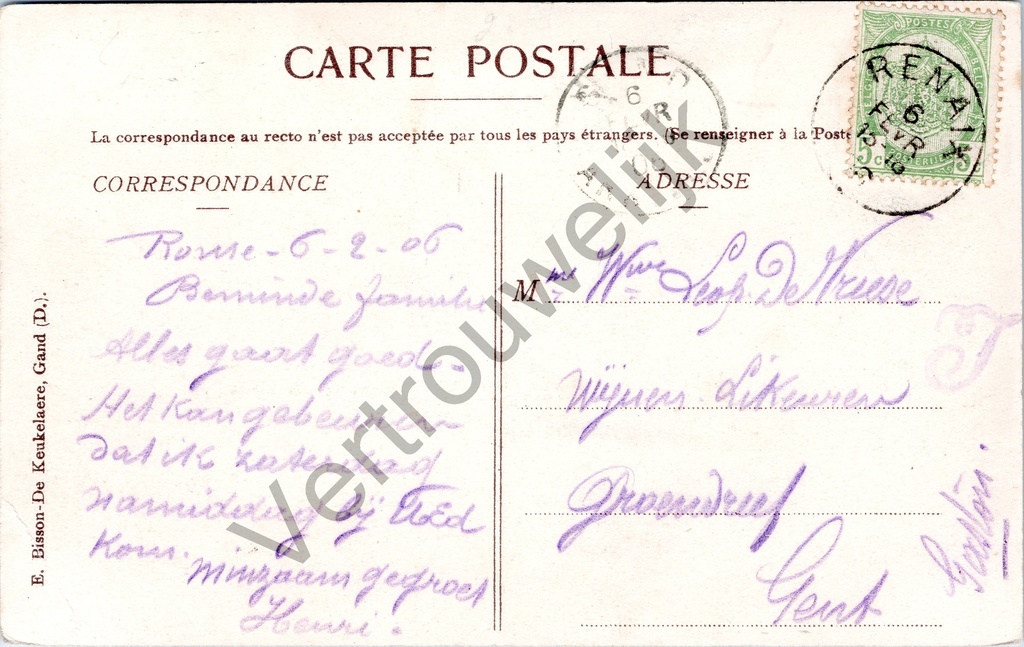 CARTE POSTALE
La correspondance au recto n'est pas acceptée par tous les pays étrangers. (Se renseigner à la Poste
CORRESPONDANCE
Ronse - 6 - 2 - 06
Beminde familie
Alles gaat goed.
Het kan gebeuren
dat ik zaterdag
namiddag bij UEd
kom.
Minzaam gegroet
Henri.
E. Bisson-De Keukelaere, Gand (D.).
ADRESSE
Mme Wwe Leop. De Vriese
Wijnen Likeuren
Groendreef
Gent
Gaston.
POSTES
5 C 5
POSTERIJEN
RENAIX
6
FEVR
6
06
Vertrouwelijk